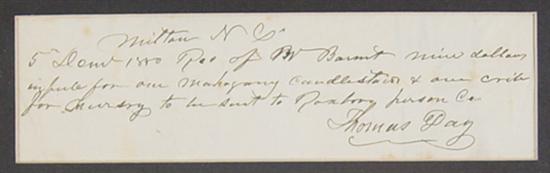 Milton N C
5 Decr Rec of Barnet nine dollars
in full for one Mahogany Candlestand & one crib
for Nursry to be sent to Roxboro person Co
Thomas Day